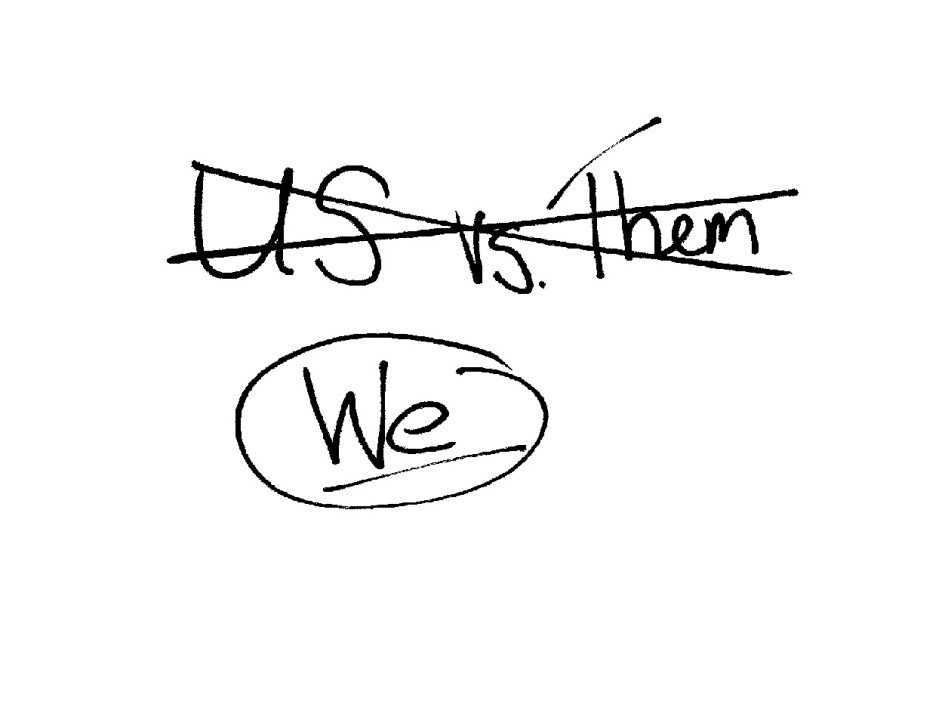 US vs. Them
We